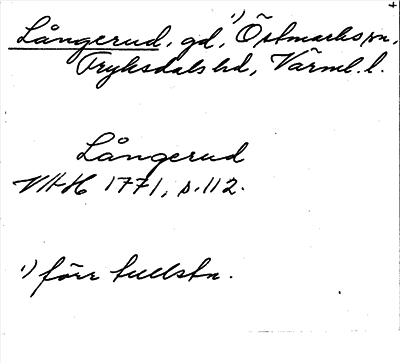 Långerud, gd,¹) Östmarks sn,
Fryksdals hd, Värml. l.
Långerud
VHH 1771, s. 112.
¹) förr tullstn.